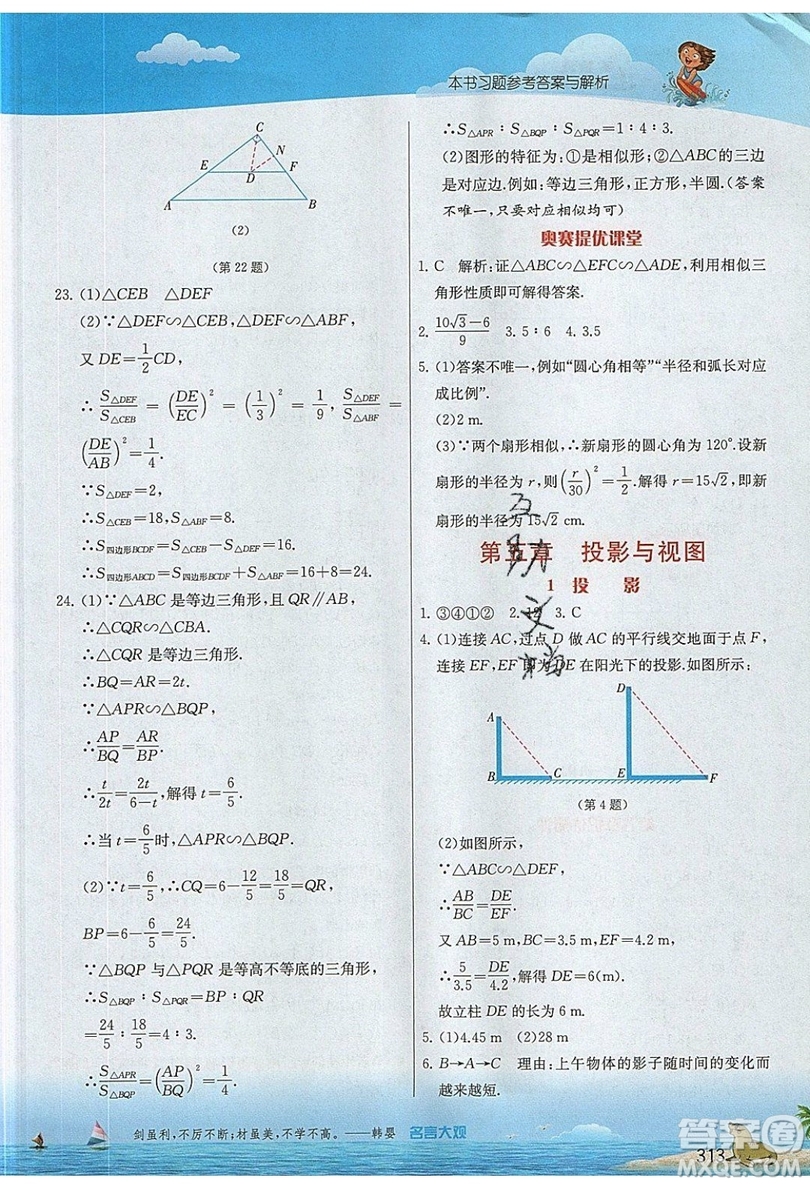 本书习题参考答案与解析
C
E
N
D
F
A
B
(2)
(第22题)
23. (1)△CEB △DEF
(2)∵△DEF∽△CEB,△DEF∽△ABF,
又DE=1/2CD,
∴S△DEF/S△CEB=(DE/EC)²=(1/3)²=1/9, S△DEF/S△ABF=
(DE/AB)²=1/4.
∵S△DEF=2,
∴S△CEB=18,S△ABF=8.
∴S四边形BCDF=S△CEB−S△DEF=16.
∴S四边形ABCD=S四边形BCDF+S△ABF=16+8=24.
24. (1)∵△ABC是等边三角形,且QR∥AB,
∴△CQR∽△CBA.
∴△CQR是等边三角形.
∴BQ=AR=2t.
∵△APR∽△BPQ,
∴AP/BQ=AR/BP.
∴t/2t=2t/(6−t),解得t=6/5.
∴当t=6/5时,△APR∽△BPQ.
(2)∵t=6/5,∴QR=CQ=6−12/5=18/5=QR,
BP=6−6/5=24/5.
∵△BQP与△PQR是等高不等底的三角形,
∴S△BQP∶S△PQR=BP∶QR
=24/5∶18/5=4∶3.
∴S△APR/S△BQP=(AP/BQ)²=1/4.
∴S△APR∶S△BQP∶S△PQR=1∶4∶3.
(2)图形的特征为:①是相似形;②△ABC的三边
是对应边.例如:等边三角形,正方形,半圆.(答案
不唯一,只要对应相似均可)
奥赛提优课堂
1. C 解析:证△ABC∽△EFC∽△ADE,利用相似三
角形性质即可解得答案.
2. (10√3−6)/9 3. 5∶6 4. 3.5
5. (1)答案不唯一,例如“圆心角相等”“半径和弧长对应
成比例”.
(2)2 m.
(3)∵两个扇形相似,∴新扇形的圆心角为120°.设新
扇形的半径为r,则(r/30)²=1/2.解得r=15√2,即新
扇形的半径为15√2 cm.
第五章 投影与视图
1 投 影
1. ③④①② 2. 3. C
4. (1)连接AC,过点D做AC的平行线交地面于点F,
连接EF,EF即为DE在阳光下的投影.如图所示:
D
A
B
C
E
F
(第4题)
(2)如图所示,
∵△ABC∽△DEF,
∴AB/BC=DE/EF.
又AB=5 m,BC=3.5 m,EF=4.2 m,
∴5/3.5=DE/4.2,解得DE=6(m).
故立柱DE的长为6 m.
5. (1)4.45 m (2)28 m
6. B→A→C 理由:上午物体的影子随时间的变化而
越来越短.
剑虽利,不厉不断;材虽美,不学不高。——韩婴 名言大观
313
答案圈
MXQE.COM